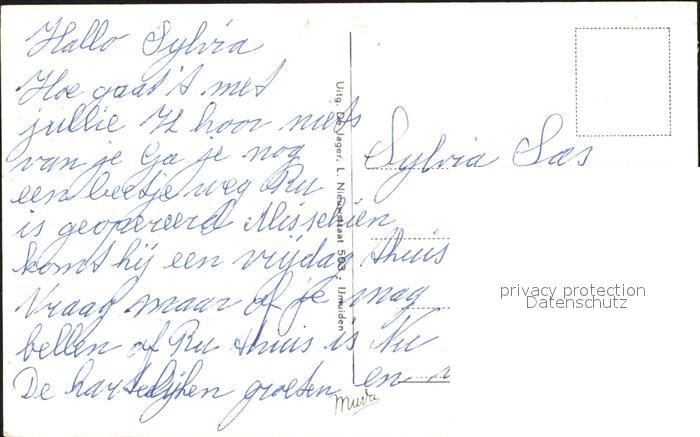 Hallo Sylvia
Hoe gaat 't met
jullie Ik hoor niets
van je Ga je nog
een beetje weg Ru
is geopereerd Misschien
komt hij een vrijdag thuis
Vraag maar of je mag
bellen of Ru thuis is Nu
De hartelijken groeten en
Uitg. De Jager, L. Nieuwstraat 503 - IJmuiden
Sylvia Sas
privacy protection
Datenschutz